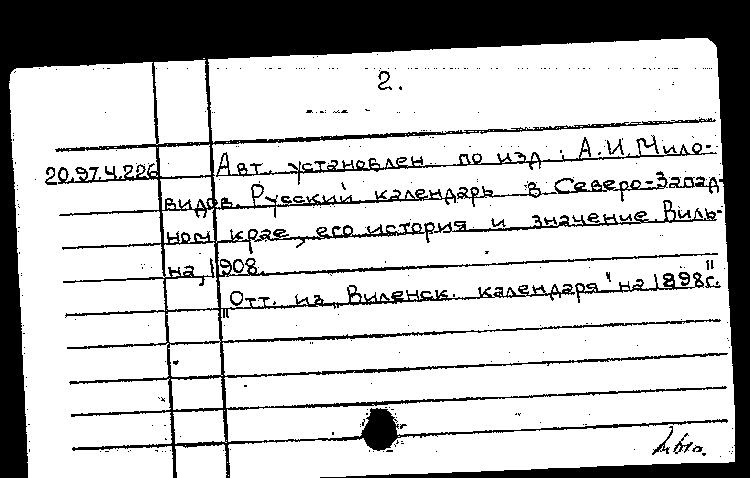 2.
20.97.4.226 Авт. установлен по изд.: А.И. Мило-
видов. Русский календарь в Северо-Запад-
ном крае, его история и значение. Виль-
на, 1908.
"Отт. из „Виленск. календаря" на 1898г."